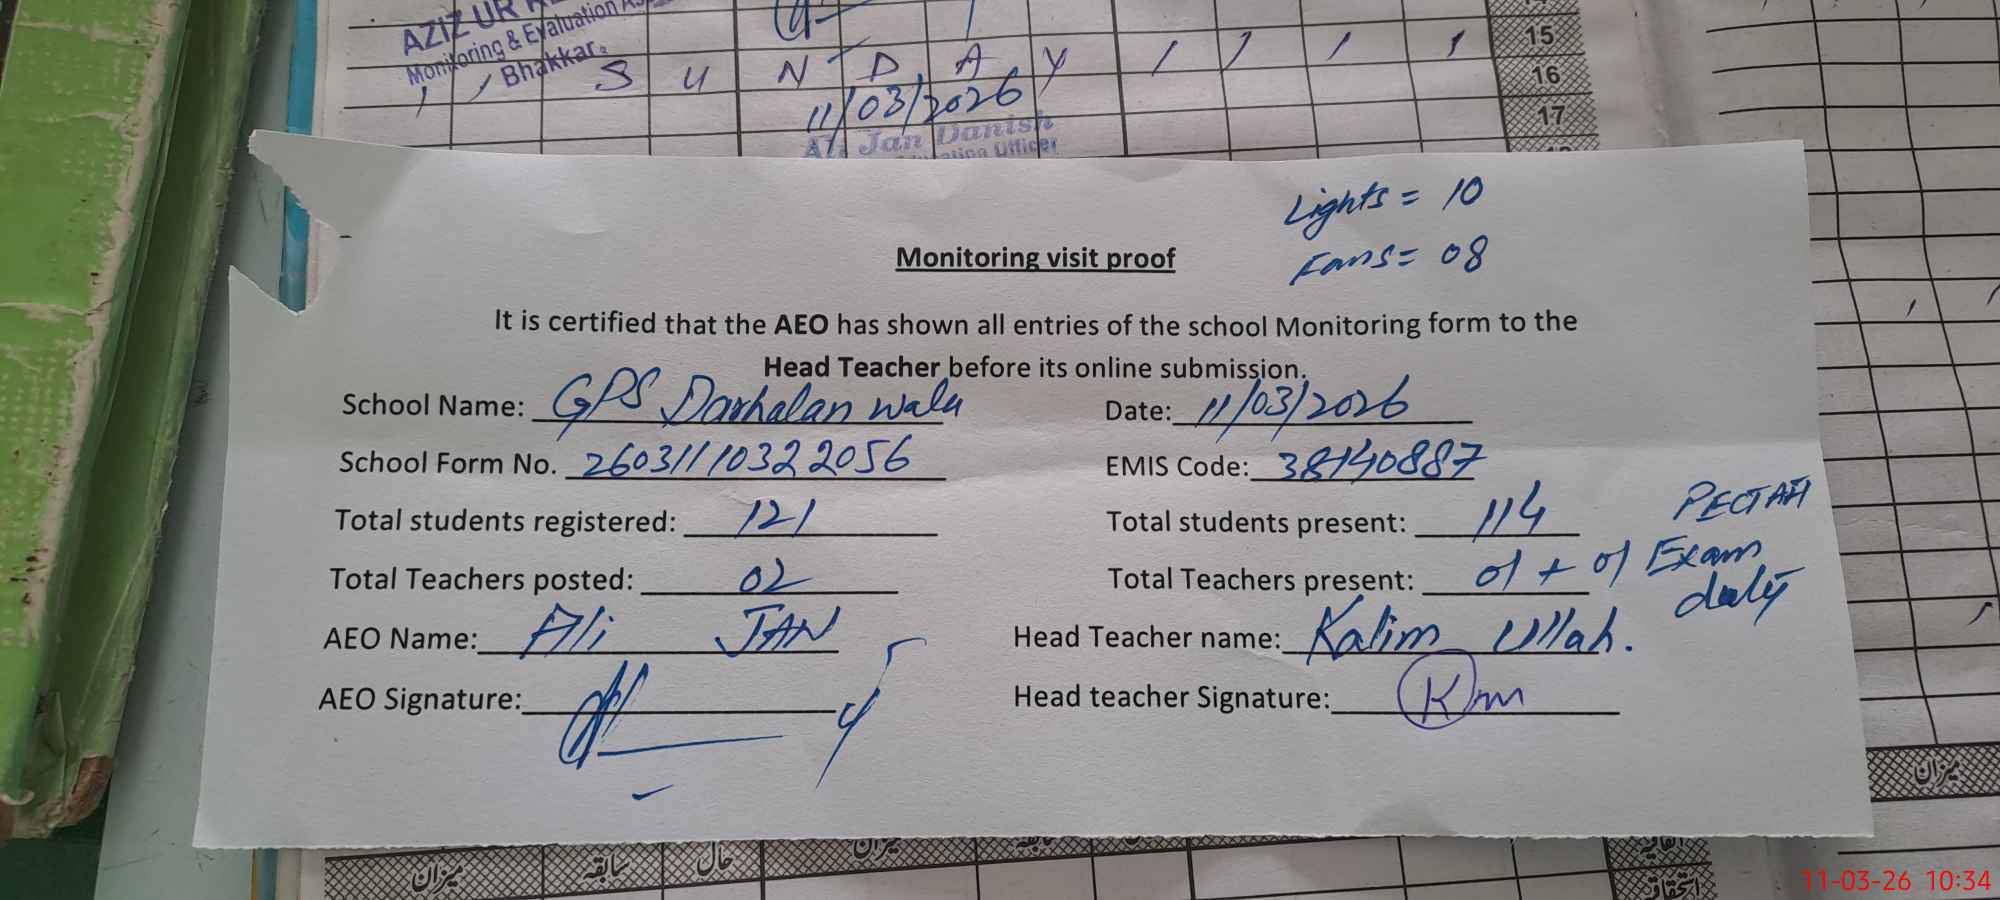 AZIZ UR
Monitoring & Evaluation
Bhakkar.
S U N D A Y
11/03/2026
Ali Jan Danish
Officer
15
16
17
Lights = 10
Fans = 08
Monitoring visit proof
It is certified that the AEO has shown all entries of the school Monitoring form to the
Head Teacher before its online submission.
School Name: GPS Darhalan wala Date: 11/03/2026
School Form No. 26031110322056 EMIS Code: 38140887
Total students registered: 121 Total students present: 114
Total Teachers posted: 02 Total Teachers present: 01 + 01 Exam duty
PECTAA
AEO Name: Ali JAN Head Teacher name: Kalim Ullah.
AEO Signature: Head teacher Signature: Km
میزان
میزان سابقہ حال میزان سابقہ
11-03-26 10:34